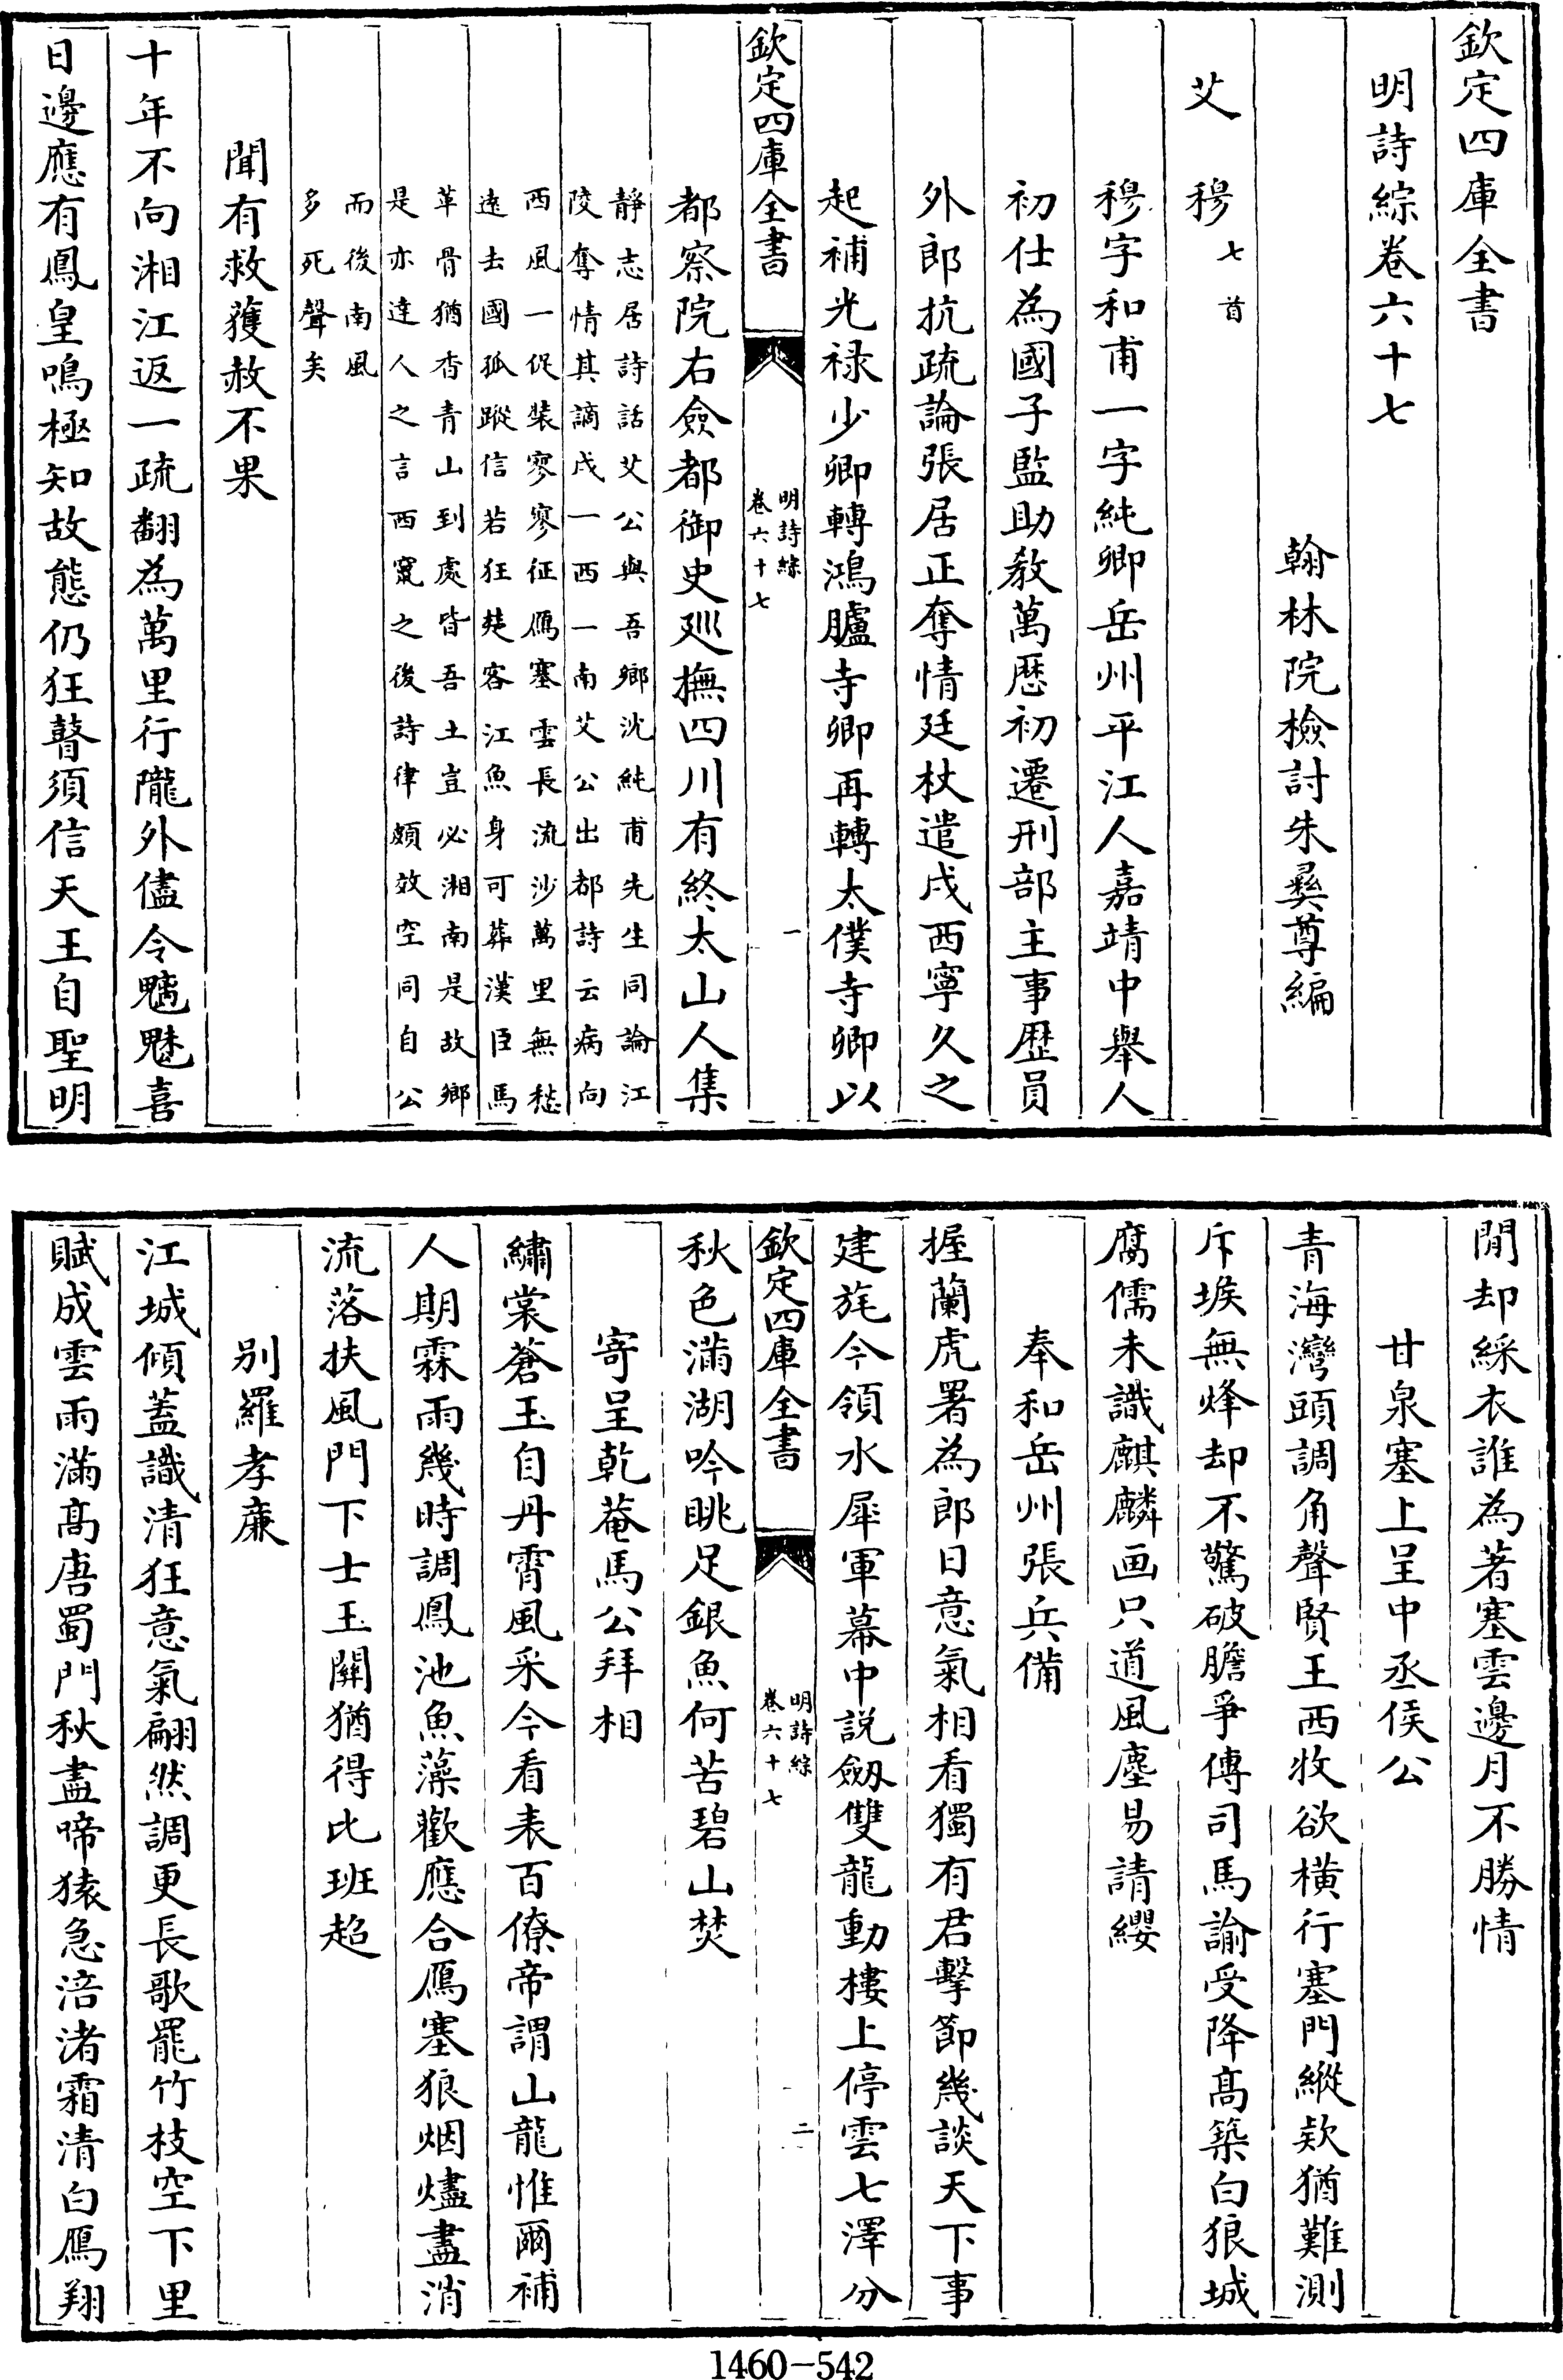 欽定四庫全書
明詩綜卷六十七
翰林院檢討朱彞尊編
艾穆七首
穆字和甫一字純卿岳州平江人嘉靖中舉人
初仕為國子監助教萬厯初遷刑部主事歴員
外郎抗疏論張居正奪情廷杖遣戍西寧久之
起補光禄少卿轉鴻臚寺卿再轉太僕寺卿以
欽定四庫全書
明詩綜
卷六十七
一
都察院右僉都御史廵撫四川有終太山人集
靜志居詩話艾公與吾鄉沈純甫先生同論江
陵奪情其謫戍一西一南艾公出都詩云病向
西風一促裝寥寥征鴈塞雲長流沙萬里無愁
遠去國孤蹤信若狂楚客江魚身可葬漢臣馬
革骨猶香青山到處皆吾土豈必湘南是故鄉
是亦達人之言西竄之後詩律頗效空同自公
而後南風
多死聲矣
聞有救蒦赦不果
十年不向湘江返一疏翻為萬里行隴外儘令魑魅喜
日邊應有鳳皇鳴極知故態仍狂瞽須信天王自聖明
閒却綵衣誰為著塞雲邊月不勝情
甘泉塞上呈中丞侯公
青海灣頭調角聲賢王西牧欲橫行塞門縱欵猶難測
斥堠無烽却不驚破膽爭傳司馬諭受降髙築白狼城
腐儒未識麒麟画只道風塵易請纓
奉和岳州張兵備
握蘭虎署為郎日意氣相看獨有君擊節幾談天下事
建旄今領水犀軍幕中説劔雙龍動樓上停雲七澤分
欽定四庫全書
明詩綜
卷六十七
二
秋色滿湖吟眺足銀魚何苦碧山焚
寄呈乾菴馬公拜相
繡裳蒼玉自丹霄風采今看表百僚帝謂山龍惟爾補
人期霖雨幾時調鳳池魚藻歡應合鴈塞狼烟燼盡消
流落扶風門下士玉關猶得比班超
別羅孝廉
江城傾蓋識清狂意氣翩然調更長歌罷竹枝空下里
賦成雲雨滿髙唐蜀門秋盡啼猿急涪渚霜清白鴈翔
1460-542